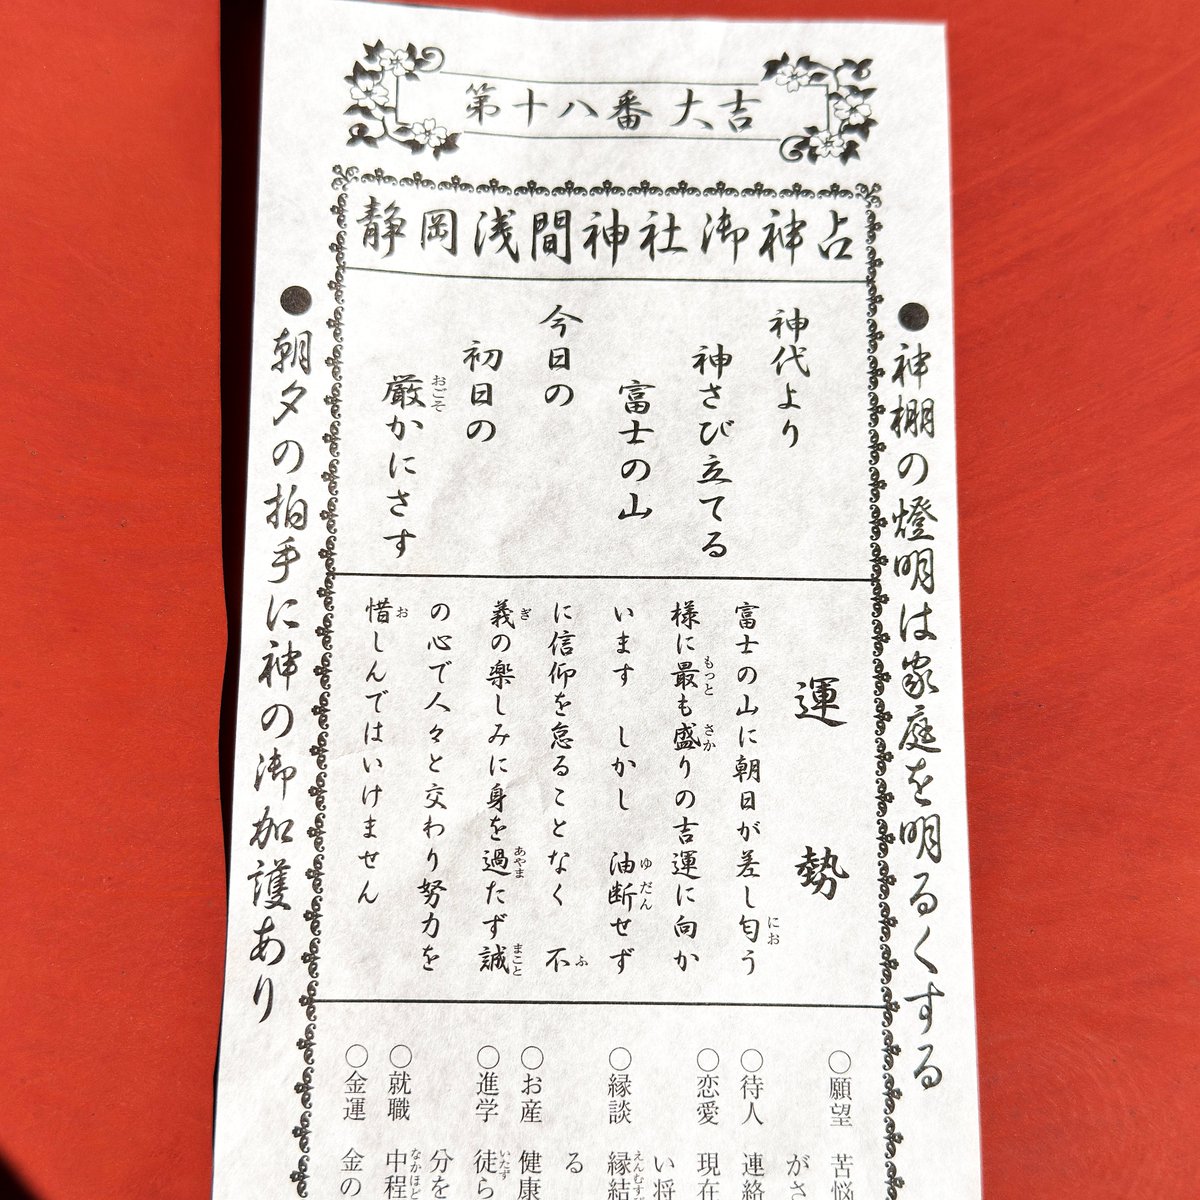 第十八番 大吉
静岡浅間神社御神占
●神棚の燈明は家庭を明るくする
神代より
神さび立てる
富士の山
今日の
初日の
厳かにさす
おごそ
運勢
富士の山に朝日が差し匂う
にお
様に最も盛りの吉運に向か
もっと さか
います しかし 油断せず
ゆだん
に信仰を怠ることなく 不
ふ
義の楽しみに身を過たず誠
ぎ あやま まこと
の心で人々と交わり努力を
惜しんではいけません
お
○願望 苦悩
がさ
○待人 連絡
○恋愛 現在
い将
○縁談 縁結
えんむす
る
○お産 健康
○進学 徒ら
いたず
分を
○就職 中程
なかほど
○金運 金の
●朝夕の拍手に神の御加護あり